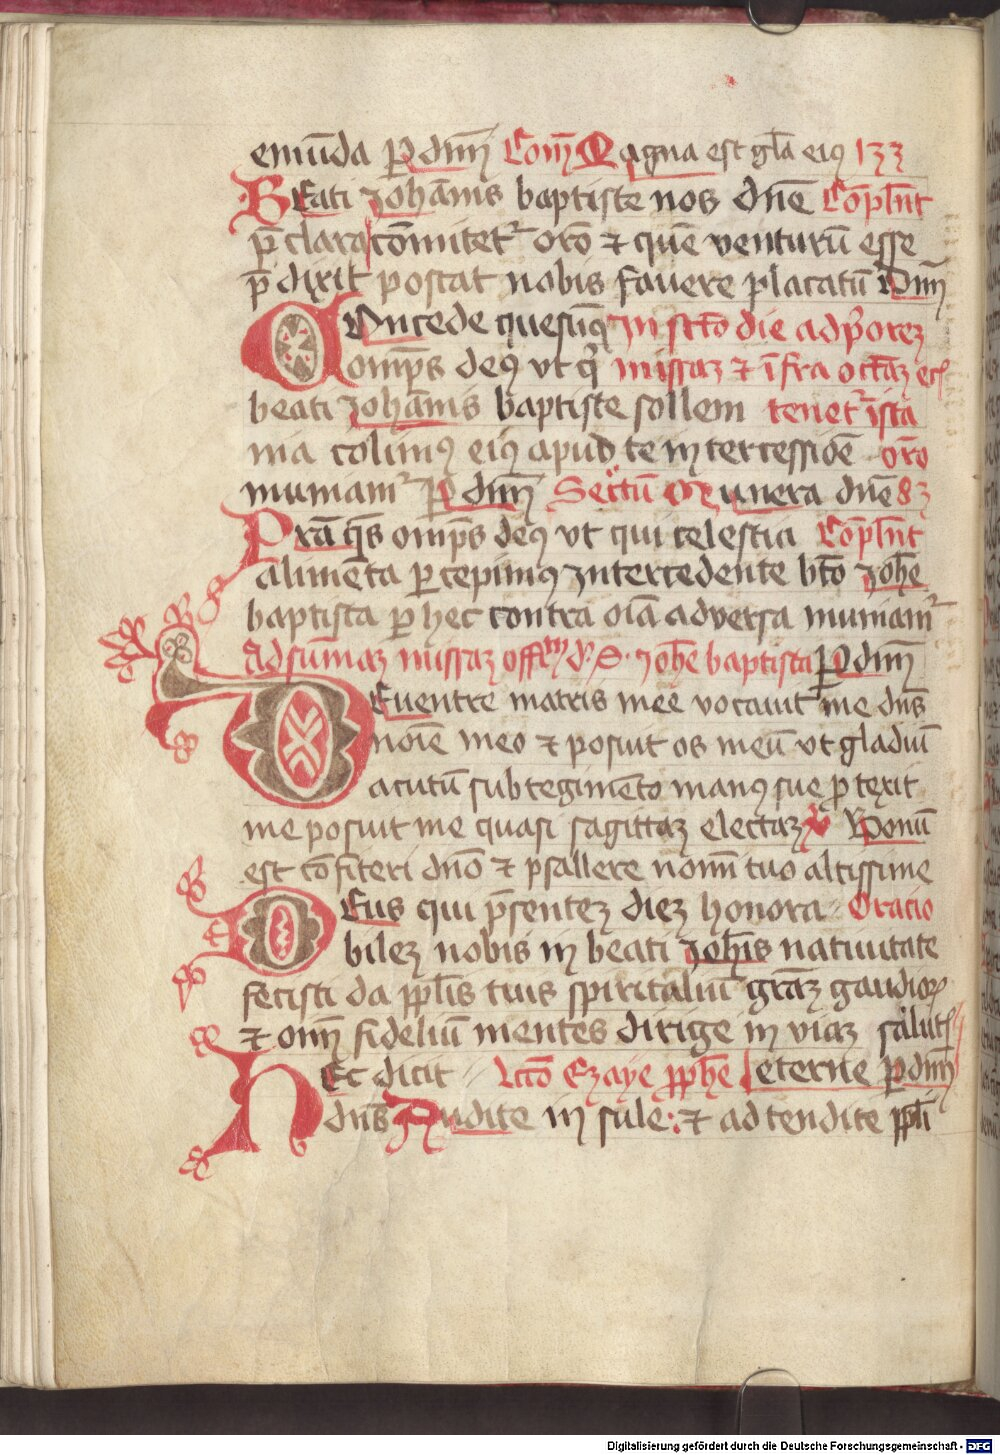 emūda P dnm̄ Com̄ Magna est gl̄a eiꝰ 133
BEati Johānis baptiste nos dn̄e Cōpln̄t
p̄clara comitetᷣ or̄o ⁊ quē venturū esse
p̄dixit poscat nobis favere placatū P dnm̄
COncede quesūꝰ In sct̄o die ad p̄orez
omp̄s deꝰ vt q̄ missaz ⁊ īfra octāz
beati Johānis baptiste sollem tenetᷣ ista
nia colimꝰ eiꝰ apud te intercessiōe or̄o
muniamᷣ P dnm̄ Secrtū Munera dn̄e 83
Pr̄a q̄s omp̄s deꝰ vt qui celestia Cōpln̄t
alimēta ꝑcepimꝰ Intercedente bt̄o Joh̄e
baptista ꝑ hec contra oīa adversa muniamᷣ
Ad sūmaz missaz offm̄ d' s. Joh̄e baptista P dnm̄
DE ventre matris mee vocavit me dn̄s
noīe meo ⁊ posuit os meū vt gladiū
acutū sub tegimēto manꝰ sue ꝓtexit
me posuit me quasi sagittaz electaz v Bonū
est cōfiteri dn̄o ⁊ psallere nomī tuo altissime
DEus qui p̄sentez diez honora Oracio
bilez nobis in beati Joh̄is nativitate
fecisti da ppl̄is tuis spiritaliū gr̄az gaudioꝝ
⁊ omī fideliū mentes dirige in viaz salut̄
HEc dicit Lcto Ezaye pph̄e eterne P dnm̄
dn̄s Audite insule: ⁊ adtendite ppl̄i
Digitalisierung gefördert durch die Deutsche Forschungsgemeinschaft - DFG